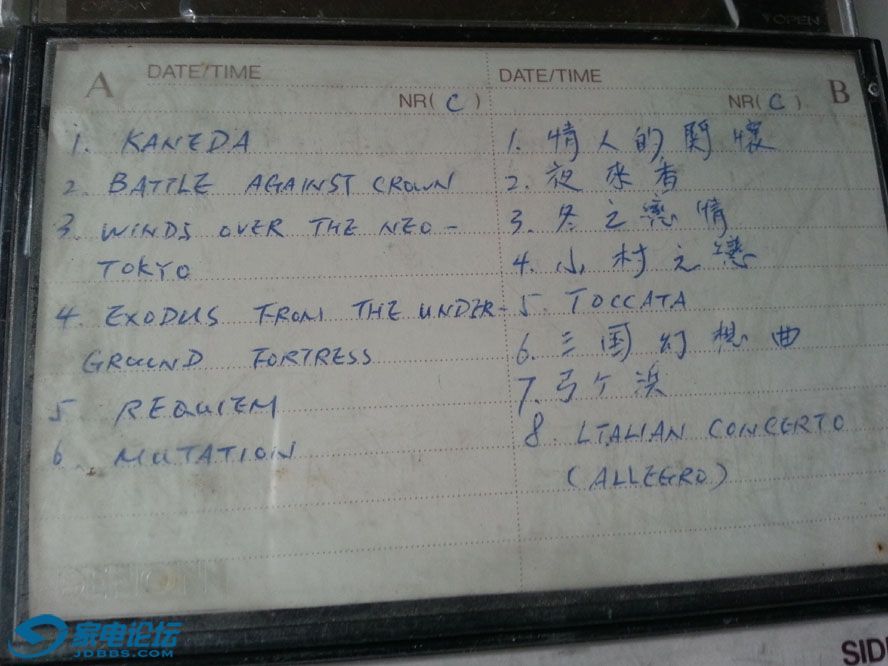 OPEN
A DATE/TIME
NR( C )
1. KANEDA
2. BATTLE AGAINST CROWN
3. WINDS OVER THE NEO -
TOKYO
4. EXODUS FROM THE UNDER-
GROUND FORTRESS
5 REQUIEM
6. MUTATION
DATE/TIME
NR( C ) B
1. 情人的関懐
2. 夜來香
3. 冬之戀情
4. 小村之戀
5. TOCCATA
6. 三国幻想曲
7. 弓ケ浜
8. LTALIAN CONCERTO
(ALLEGRO)
家电论坛
JDBBS.COM
SIDE